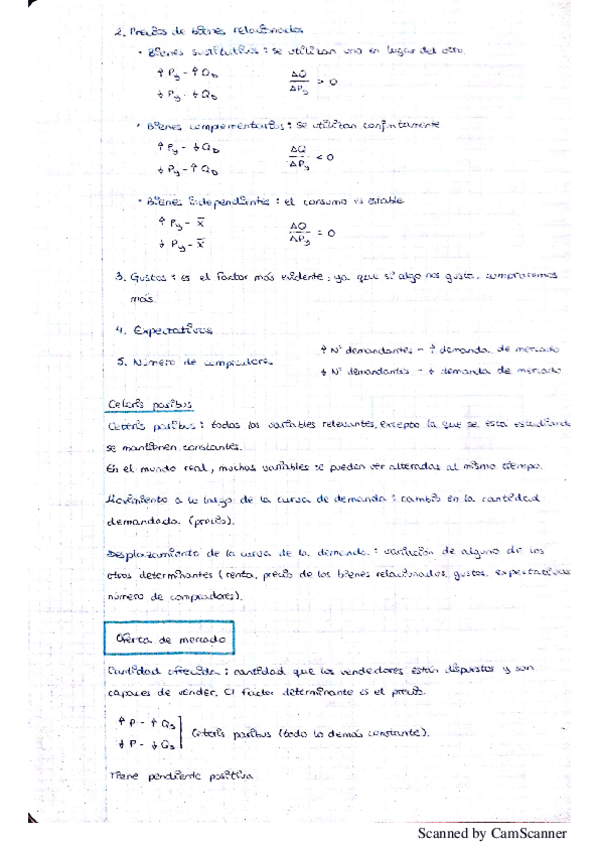 2. Precios de bienes relacionados
• Bienes sustitutivos : se utilizan uno en lugar del otro.
↑ Py - ↑ QD   ΔQ/ΔPy > 0
↓ Py - ↓ QD
• Bienes complementarios : se utilizan conjuntamente
↑ Py - ↓ QD   ΔQ/ΔPy < 0
↓ Py - ↑ QD
• Bienes independientes : el consumo es estable
↑ Py - x̅   ΔQ/ΔPy = 0
↓ Py - x̅
3. Gustos : es el factor más evidente, ya que si algo nos gusta, compraremos
más.
4. Expectativas
5. Número de compradores.   ↑ Nº demandantes - ↑ demanda de mercado
↓ Nº demandantes - ↓ demanda de mercado
Ceteris paribus
Ceteris paribus : todas las variables relevantes, excepto la que se está estudiando
se mantienen constantes.
En el mundo real, muchas variables se pueden ver alteradas al mismo tiempo.
Movimiento a lo largo de la curva de demanda : cambio en la cantidad
demandada. (precio).
Desplazamiento de la curva de la demanda : variación de alguno de los
otros determinantes (renta, precio de los bienes relacionados, gustos, expectativas
número de compradores).
Oferta de mercado
Cantidad ofrecida : cantidad que los vendedores están dispuestos y son
capaces de vender. El factor determinante es el precio.
↑ P - ↑ Qs
↓ P - ↓ Qs ] Ceteris paribus (todo lo demás constante).
Tiene pendiente positiva
Scanned by CamScanner